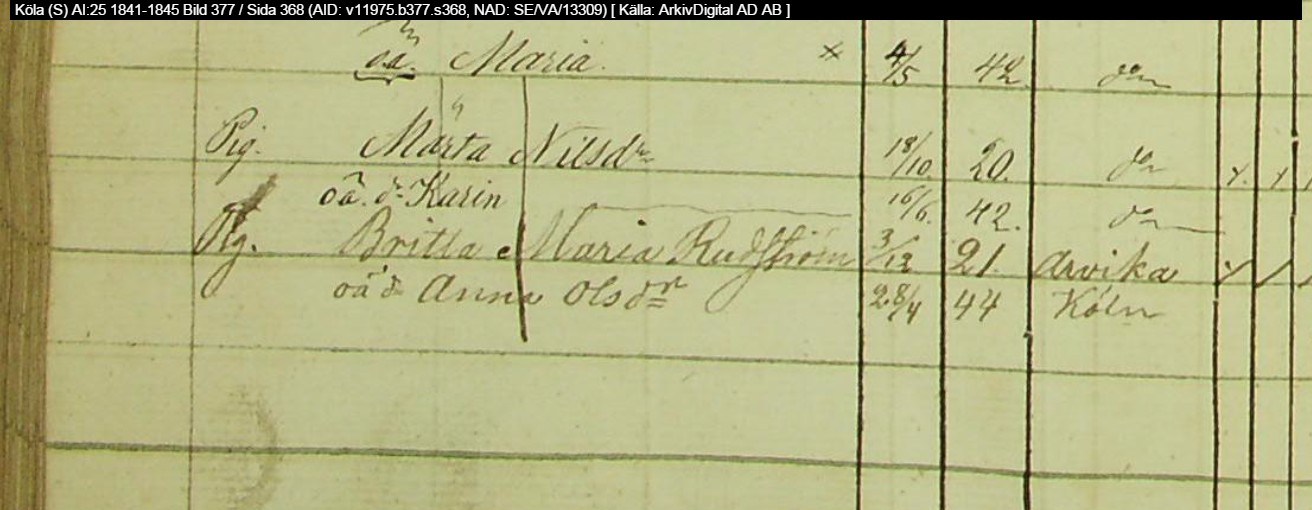 Köla (S) AI:25 1841-1845 Bild 377 / Sida 368 (AID: v11975.b377.s368, NAD: SE/VA/13309) [ Källa: ArkivDigital AD AB ]
oä. Maria. x 4/5 42 do
Pig. Märta Nilsdr 18/10. 20. do
oä. dr Karin 16/6. 42. do
Pig. Britta Maria Rudström 3/12 21. Arvika
oä dr Anna Olsdr 28/4 44 Köln